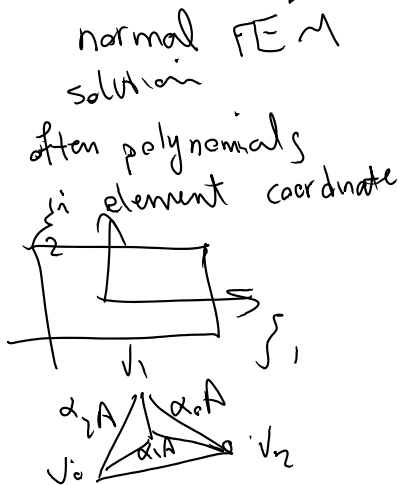 normal FEM
solution
often polynomials
in element coordinate
ξ2
ξ1
V1
α2A α0A
α1A
V0 V2